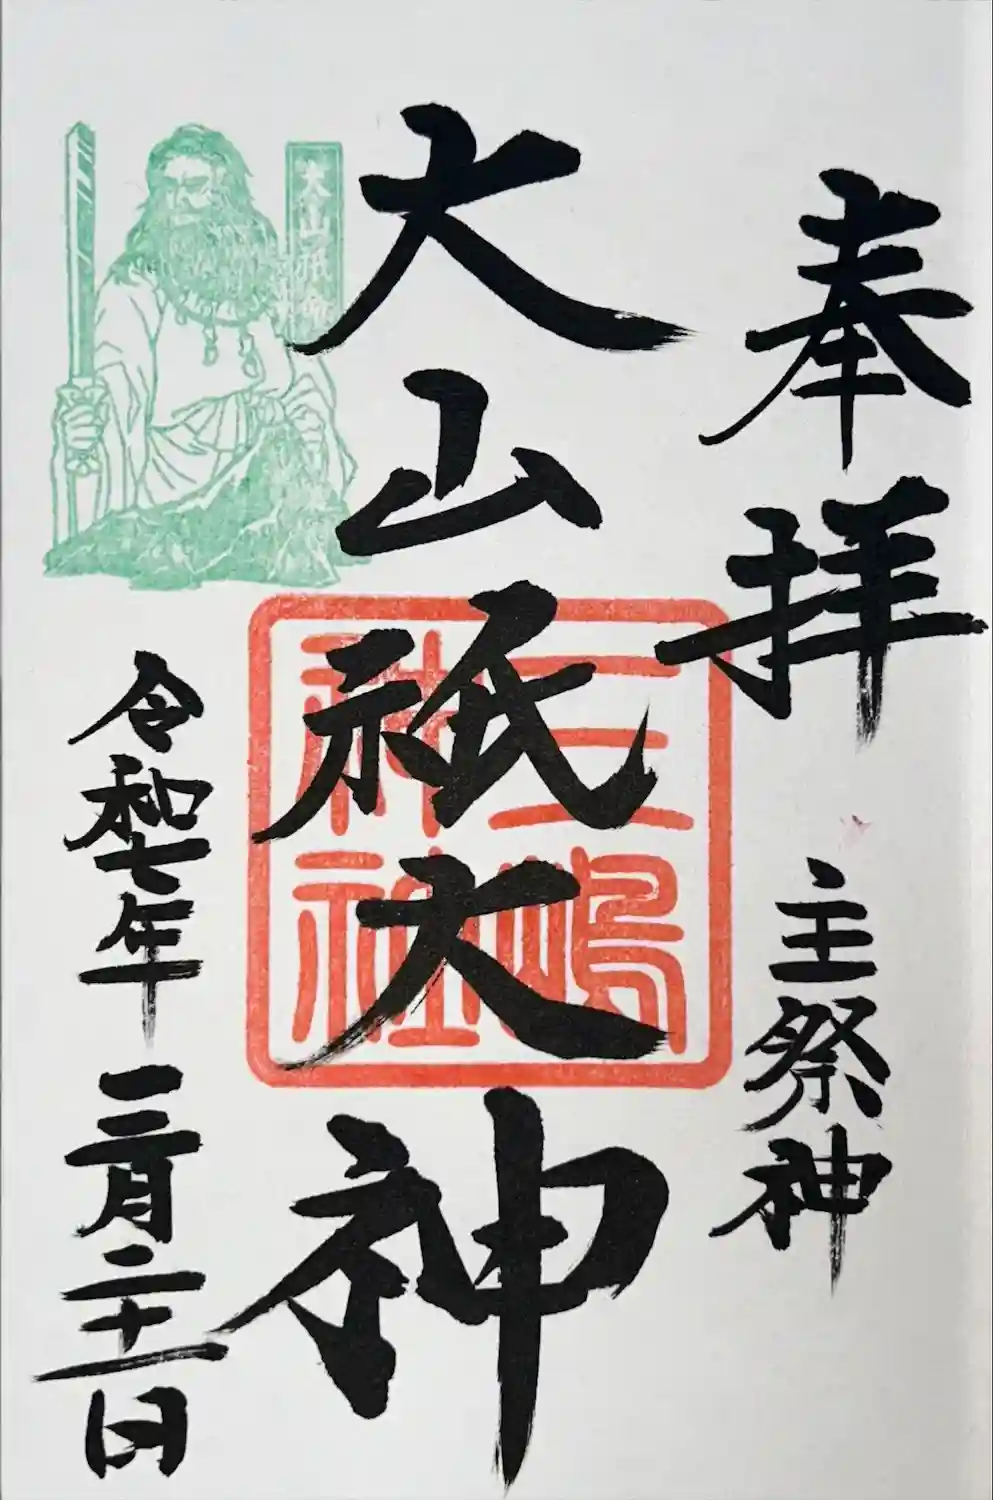 奉拝
主祭神
大山祇大神
三嶋
神社
大山祇命
令和七年三月二十一日